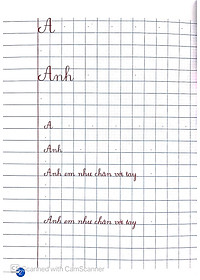 A
Anh
A
Anh
Anh em như chân với tay
Anh em như chân với tay
Scanned with CamScanner